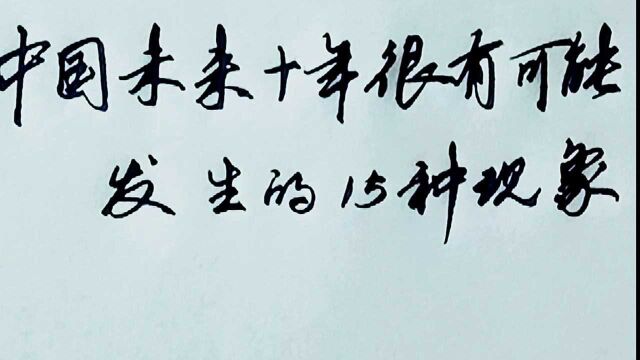 中国未来十年很有可能
发生的15种现象